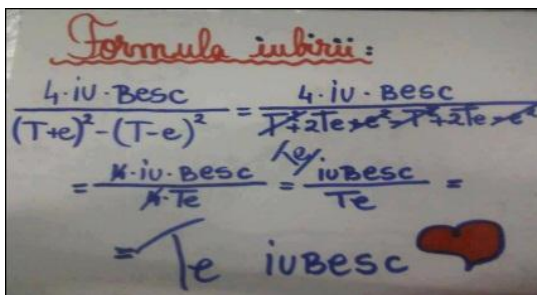 Formula iubirii:
4·iu·Besc / (T+e)² - (T-e)² = 4·iu·Besc / T²+2Te+e²-T²+2Te-e²
= 4·iu·Besc / 4·Te = iuBesc / Te =
= Te iuBesc